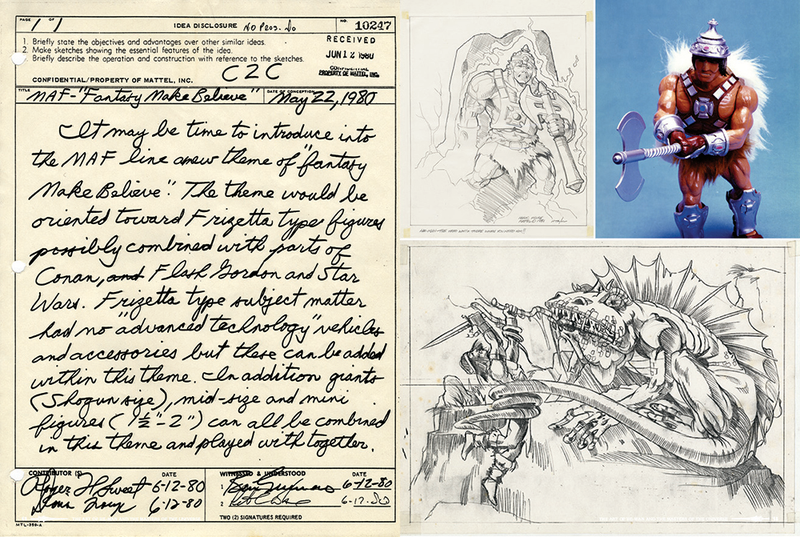 PAGE 1 OF 1 IDEA DISCLOSURE NO. 10247
1. Briefly state the objectives and advantages over other similar ideas.
2. Make sketches showing the essential features of the idea.
Briefly describe the operation and construction with reference to the sketches.
RECEIVED
JUN 12 1980
CONFIDENTIAL
PROPERTY OF MATTEL, INC.
CONFIDENTIAL/PROPERTY OF MATTEL, INC.
C2C
TITLE DATE OF CONCEPTION
MAF-"Fantasy Make Believe" May 22, 1980
It may be time to introduce into
the MAF line a new theme of "fantasy
Make Believe". The theme would be
oriented toward Frizetta type figures
possibly combined with parts of
Conan, and Flash Gordon and Star
Wars. Frizetta type subject matter
had no "advanced technology" vehicles
and accessories but these can be added
within this theme. In addition giants
(Shogun size), mid-size and mini
figures (1½"-2") can all be combined
in this theme and played with together.
CONTRIBUTOR (S) DATE WITNESSED & UNDERSTOOD DATE
Roger H Sweet 6-12-80 1 6-12-80
6-12-80 2 6-12-80
TWO (2) SIGNATURES REQUIRED